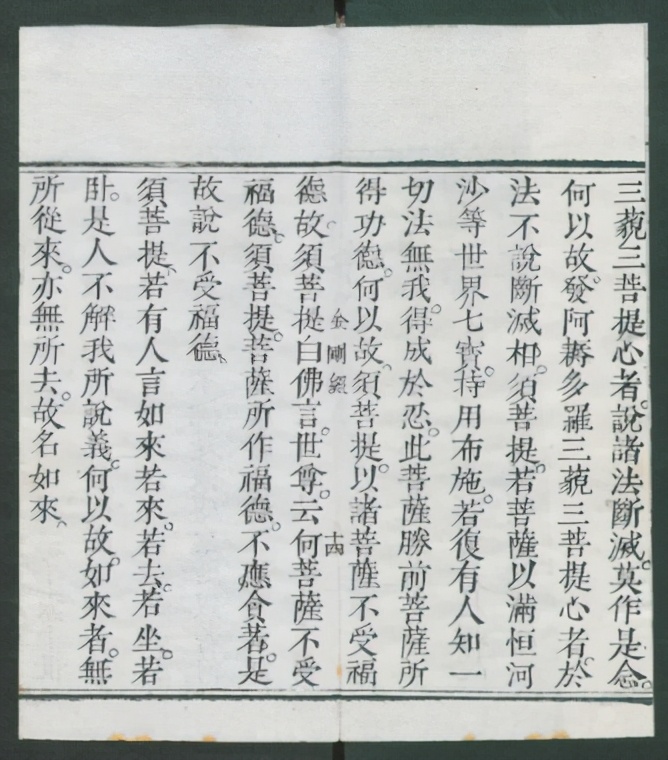 三藐三菩提心者。說諸法斷滅。莫作是念。
何以故。發阿耨多羅三藐三菩提心者。於
法不說斷滅相。須菩提。若菩薩以滿恒河
沙等世界七寶。持用布施。若復有人知一
切法無我。得成於忍。此菩薩勝前菩薩所
得功德。何以故。須菩提。以諸菩薩不受福
金剛經 十四
德故。須菩提白佛言。世尊。云何菩薩不受
福德。須菩提。菩薩所作福德。不應貪著。是
故說不受福德。
須菩提。若有人言如來若來。若去。若坐。若
臥。是人不解我所說義。何以故。如來者。無
所從來。亦無所去。故名如來。